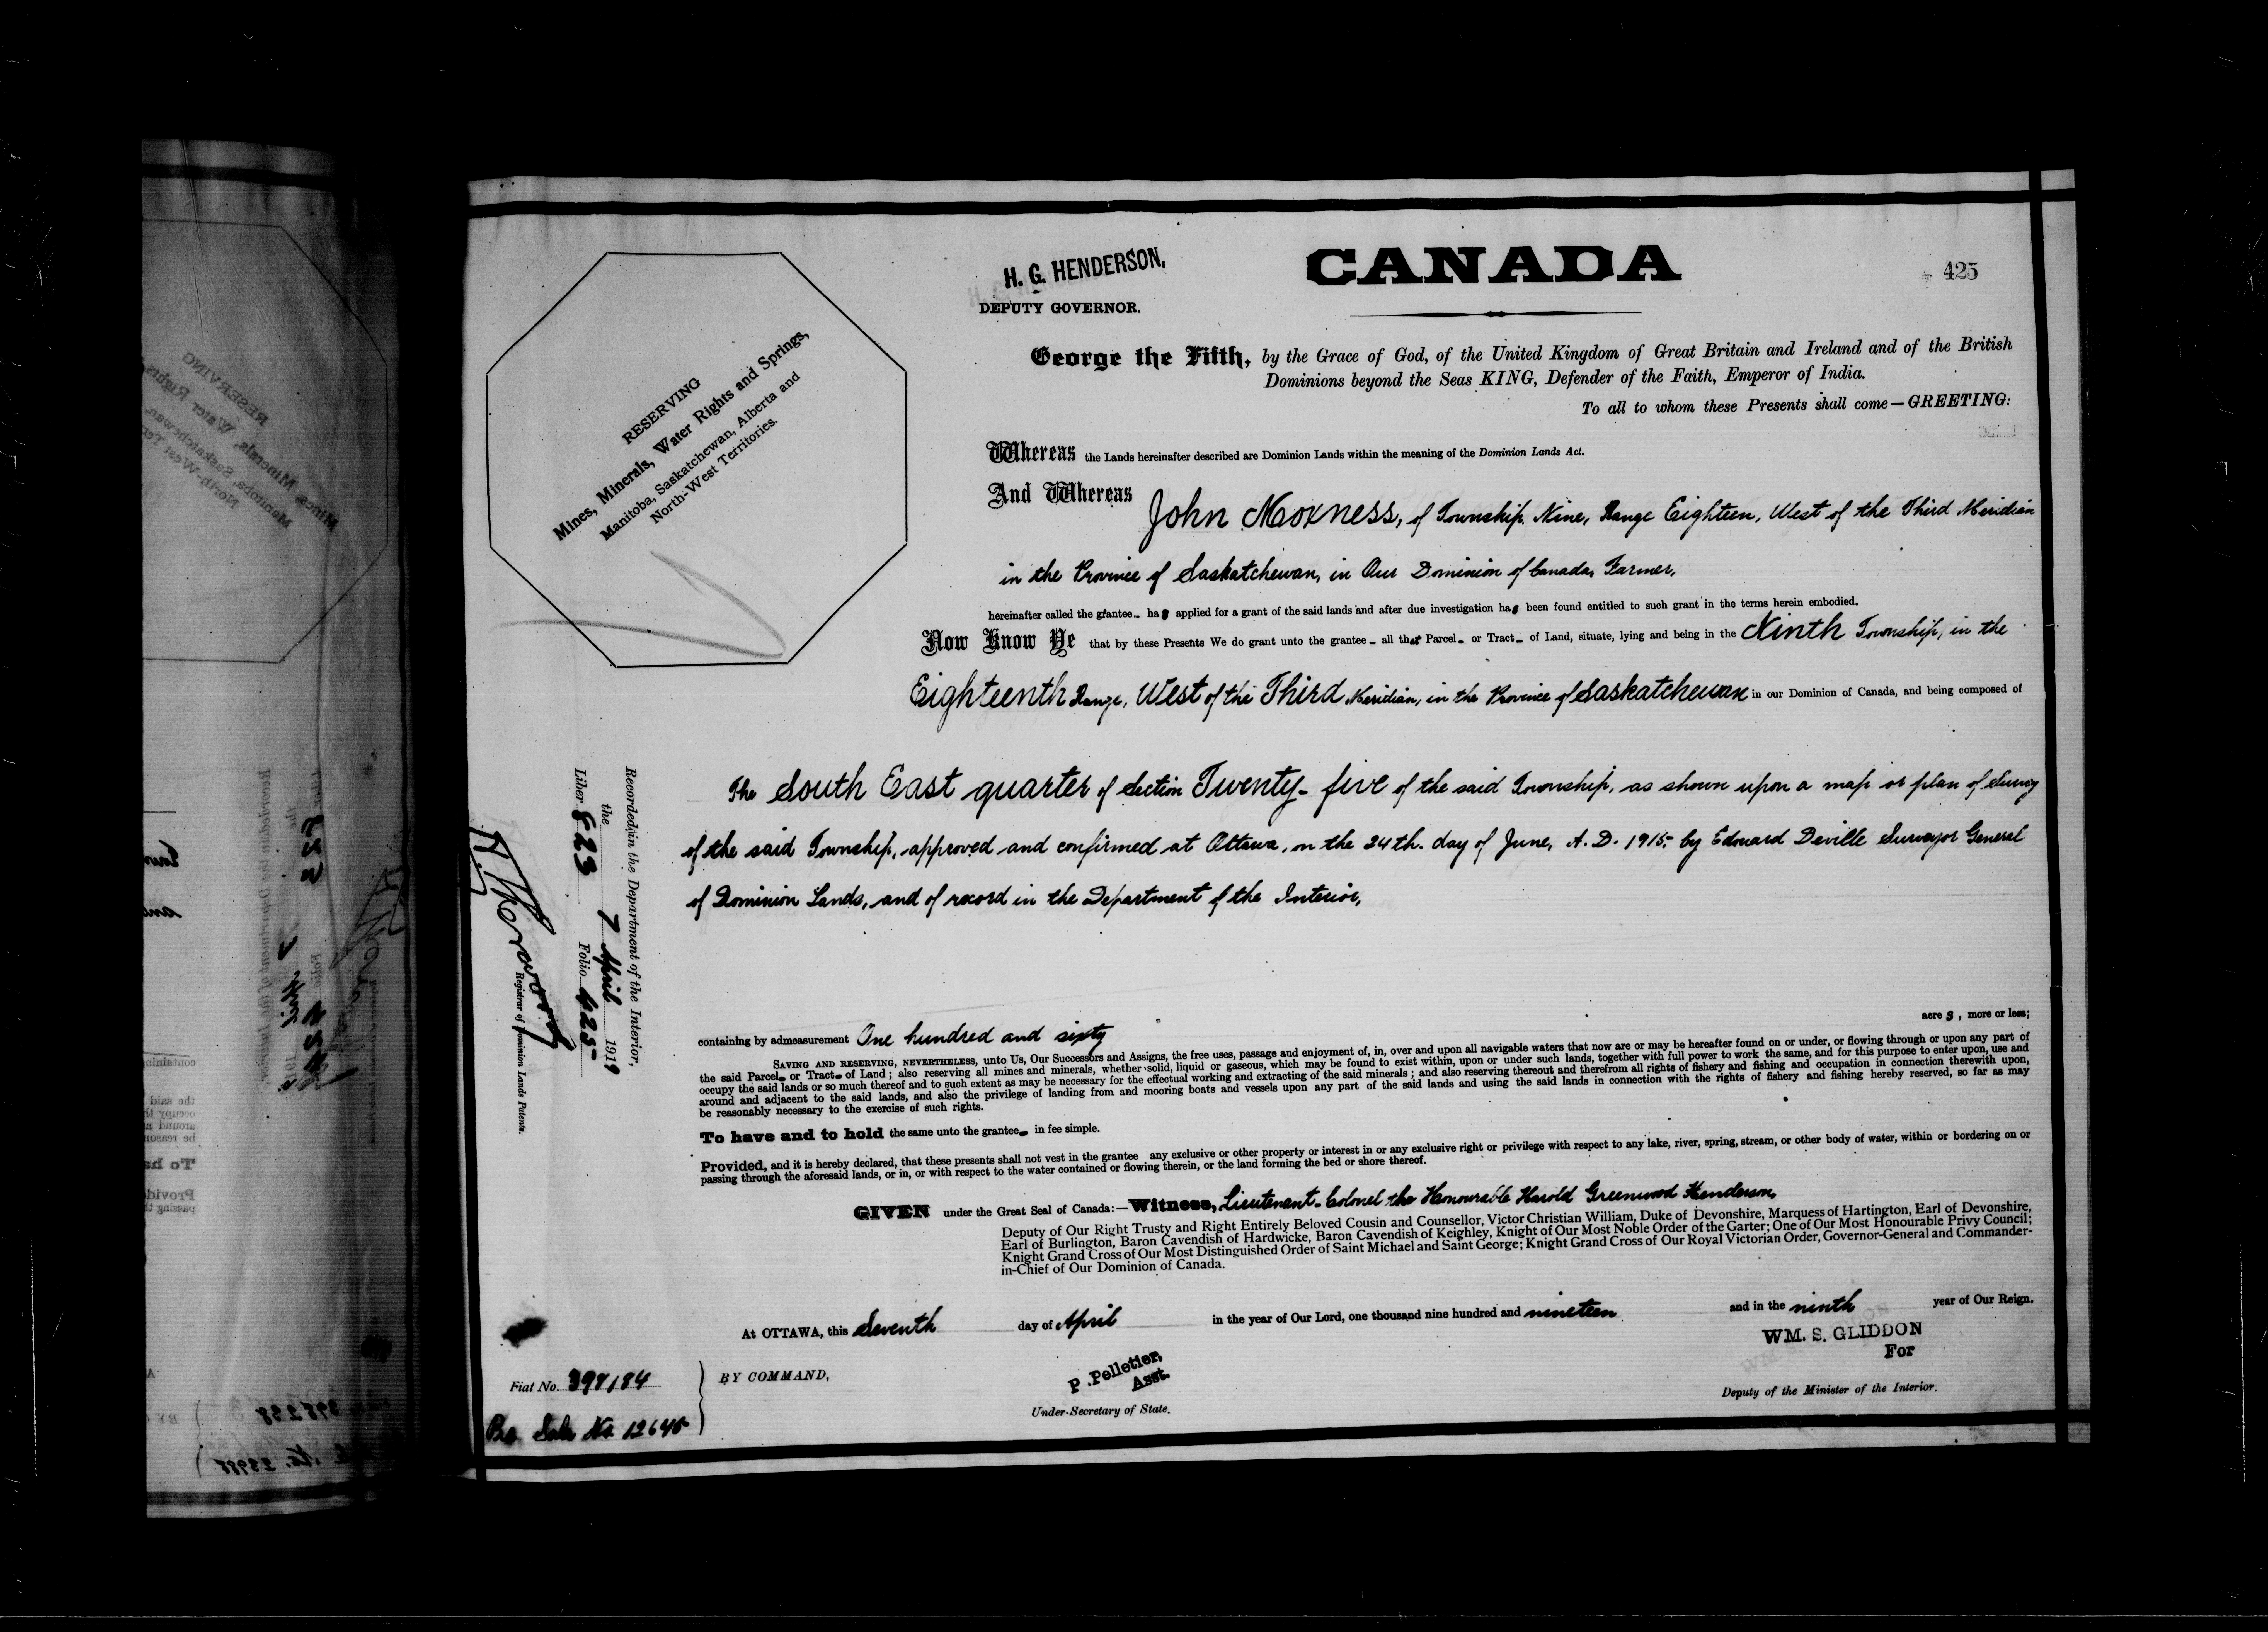 H. G. HENDERSON,
DEPUTY GOVERNOR.
CANADA
425
RESERVING
Mines, Minerals, Water Rights and Springs,
Manitoba, Saskatchewan, Alberta and
North-West Territories.
George the Fifth, by the Grace of God, of the United Kingdom of Great Britain and Ireland and of the British
Dominions beyond the Seas KING, Defender of the Faith, Emperor of India.
To all to whom these Presents shall come—GREETING:
Whereas the Lands hereinafter described are Dominion Lands within the meaning of the Dominion Lands Act.
And Whereas John Moxness, of Township Nine, Range Eighteen, West of the Third Meridian
in the Province of Saskatchewan, in Our Dominion of Canada, Farmer,
hereinafter called the grantee has applied for a grant of the said lands and after due investigation has been found entitled to such grant in the terms herein embodied.
Now Know Ye that by these Presents We do grant unto the grantee all that Parcel or Tract of Land, situate, lying and being in the Ninth Township, in the
Eighteenth Range, West of the Third Meridian, in the Province of Saskatchewan in our Dominion of Canada, and being composed of
The South East quarter of Section Twenty-five of the said Township, as shown upon a map or plan of Survey
of the said Township, approved and confirmed at Ottawa, on the 24th. day of June, A.D. 1915, by Edouard Deville Surveyor General
of Dominion Lands, and of record in the Department of the Interior,
Recorded in the Department of the Interior,
the 7 April 1919
Liber 823 Folio 425
Registrar of Dominion Lands Patents.
containing by admeasurement One hundred and sixty acres, more or less;
SAVING AND RESERVING, NEVERTHELESS, unto Us, Our Successors and Assigns, the free uses, passage and enjoyment of, in, over and upon all navigable waters that now are or may be hereafter found on or under, or flowing through or upon any part of
the said Parcel or Tract of Land; also reserving all mines and minerals, whether solid, liquid or gaseous, which may be found to exist within, upon or under such lands, together with full power to work the same, and for this purpose to enter upon, use and
occupy the said lands or so much thereof and to such extent as may be necessary for the effectual working and extracting of the said minerals; and also reserving thereout and therefrom all rights of fishery and fishing and occupation in connection therewith upon,
around and adjacent to the said lands, and also the privilege of landing from and mooring boats and vessels upon any part of the said lands and using the said lands in connection with the rights of fishery and fishing hereby reserved, so far as may
be reasonably necessary to the exercise of such rights.
To have and to hold the same unto the grantee in fee simple.
Provided, and it is hereby declared, that these presents shall not vest in the grantee any exclusive or other property or interest in or any exclusive right or privilege with respect to any lake, river, spring, stream, or other body of water, within or bordering on or
passing through the aforesaid lands, or in, or with respect to the water contained or flowing therein, or the land forming the bed or shore thereof.
GIVEN under the Great Seal of Canada:—Witness, Lieutenant-Colonel the Honourable Harold Greenwood Henderson,
Deputy of Our Right Trusty and Right Entirely Beloved Cousin and Counsellor, Victor Christian William, Duke of Devonshire, Marquess of Hartington, Earl of Devonshire,
Earl of Burlington, Baron Cavendish of Hardwicke, Baron Cavendish of Keighley, Knight of Our Most Noble Order of the Garter; One of Our Most Honourable Privy Council;
Knight Grand Cross of Our Most Distinguished Order of Saint Michael and Saint George; Knight Grand Cross of Our Royal Victorian Order, Governor-General and Commander-
in-Chief of Our Dominion of Canada.
At OTTAWA, this Seventh day of April in the year of Our Lord, one thousand nine hundred and nineteen and in the ninth year of Our Reign.
WM. S. GLIDDON
For
Deputy of the Minister of the Interior.
BY COMMAND,
P. Pelletier,
Asst.
Under-Secretary of State.
Fiat No. 398184
Sale No. 12645